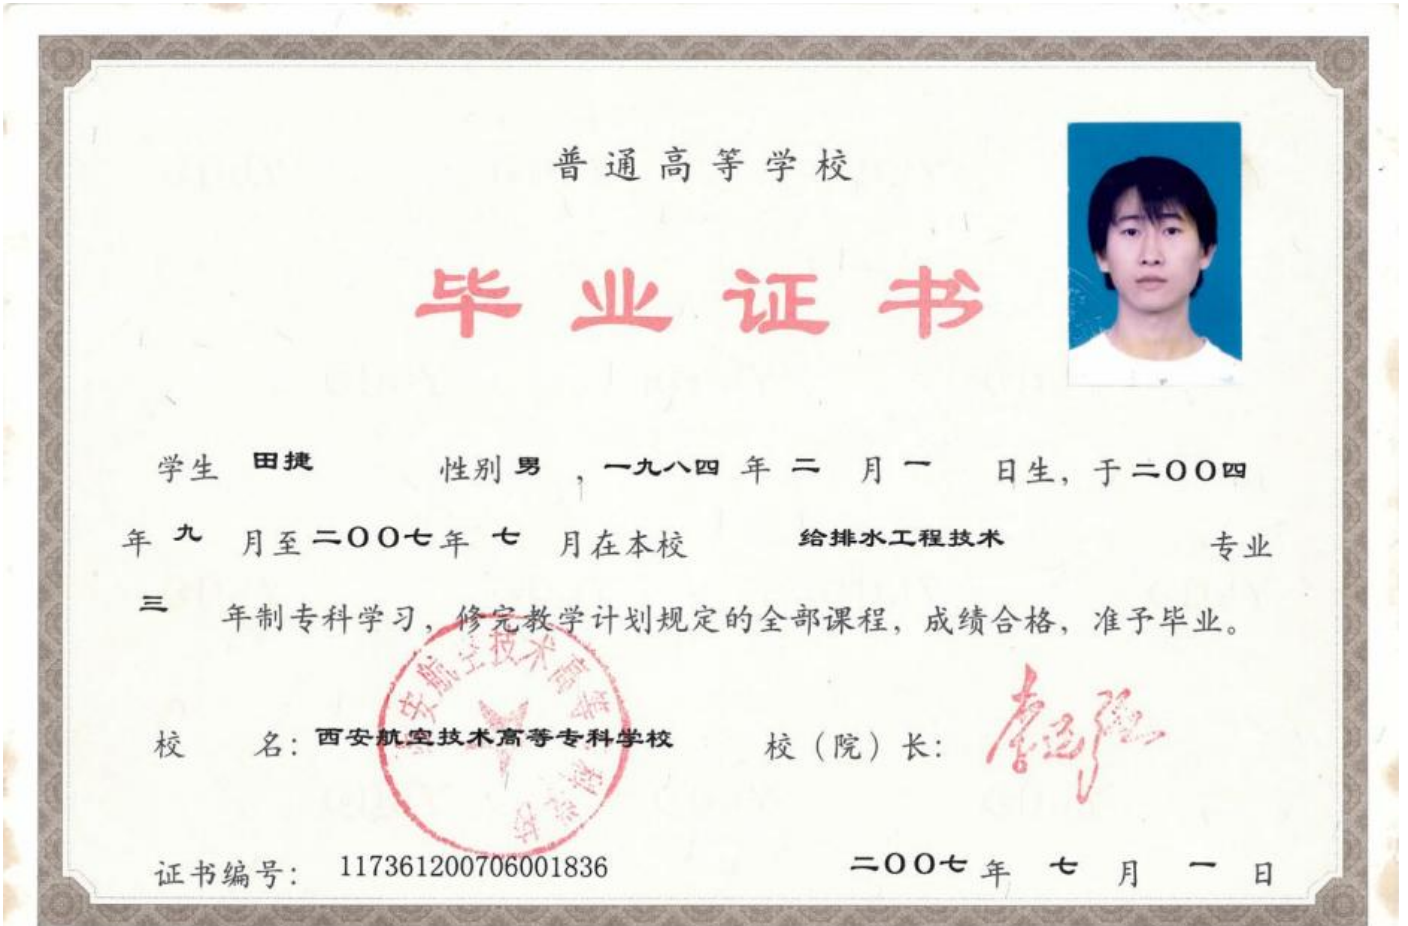 普通高等学校
毕业证书
学生 田捷 性别 男 ，一九八四 年 二 月 一 日生，于 二〇〇四
年 九 月至 二〇〇七 年 七 月在本校 给排水工程技术 专业
三 年制专科学习，修完教学计划规定的全部课程，成绩合格，准予毕业。
校 名：西安航空技术高等专科学校 校（院）长：
西安航空技术高等专科学校
证书编号： 117361200706001836 二〇〇七 年 七 月 一 日